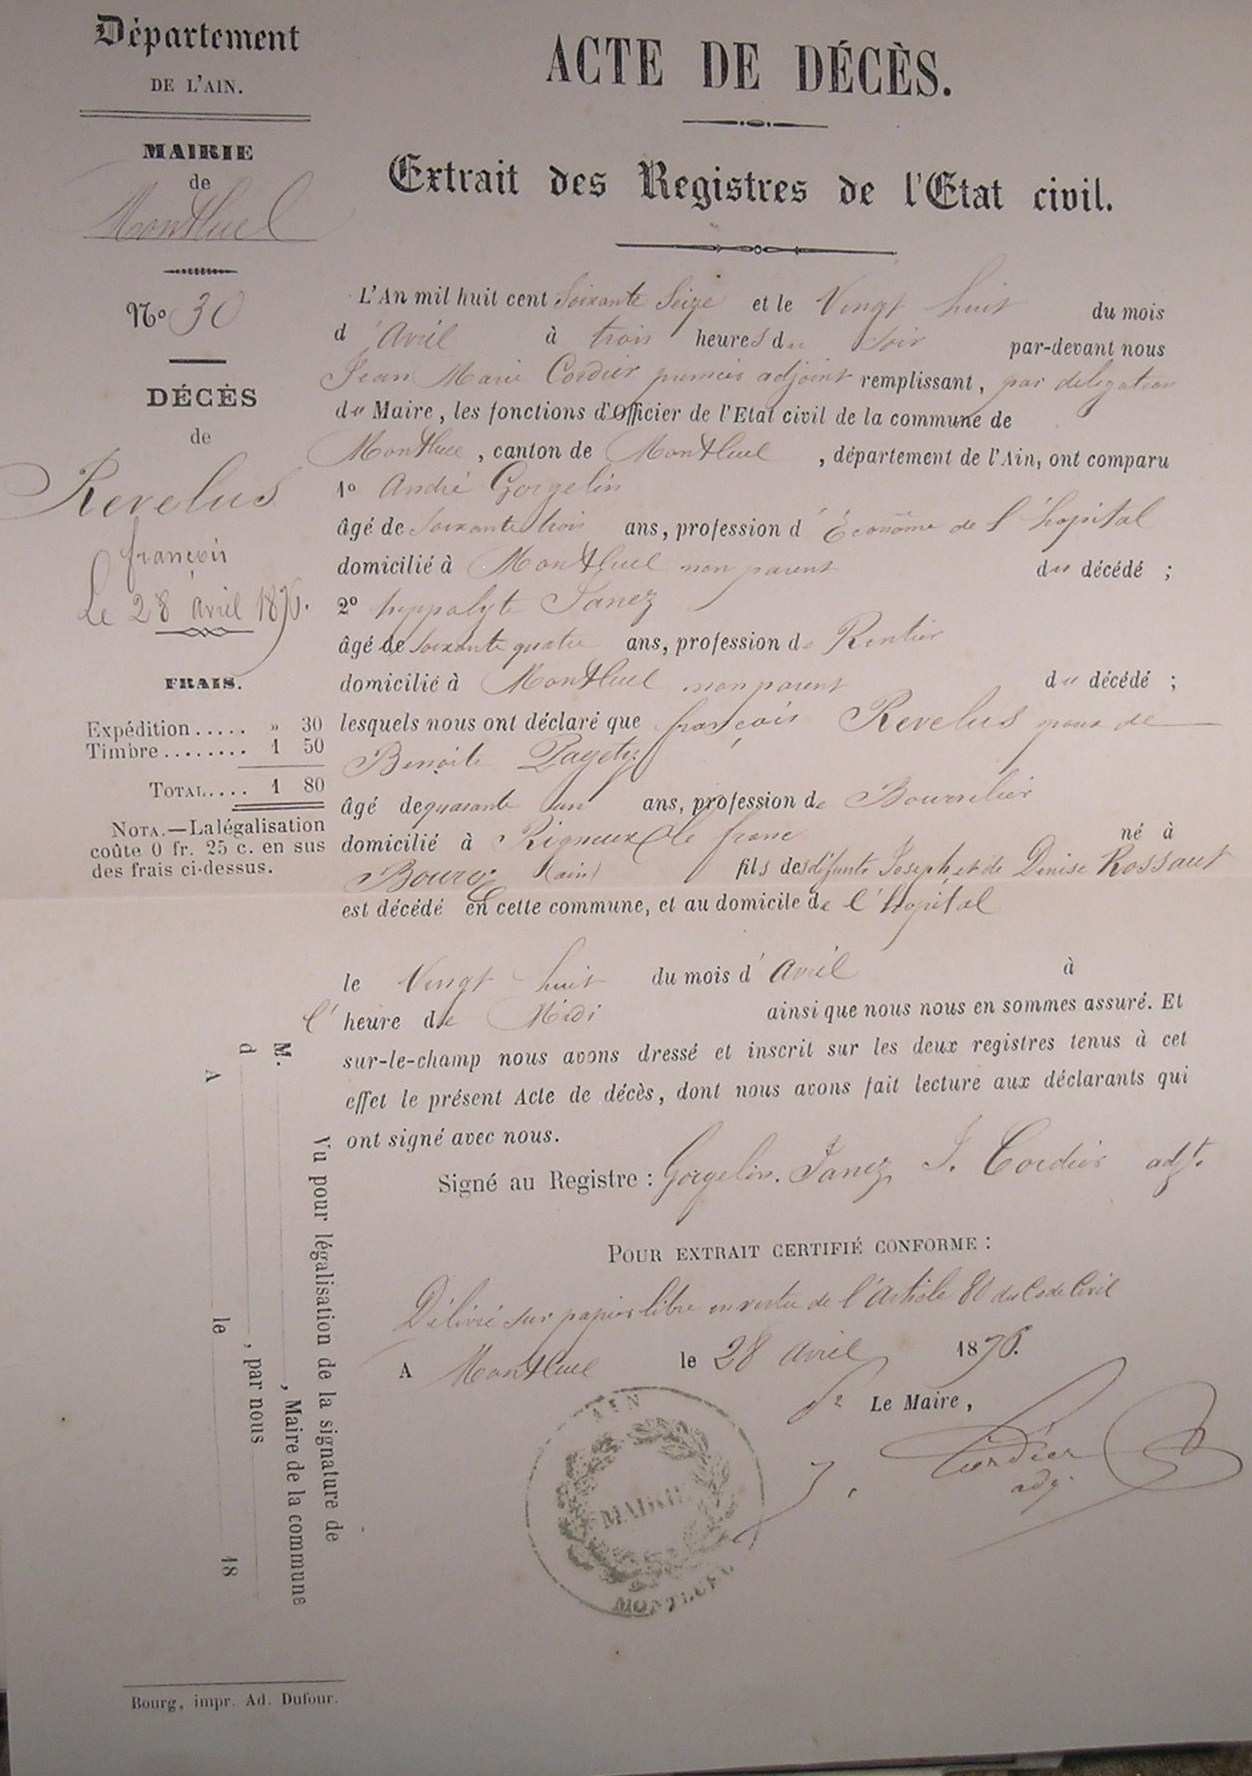 Département
DE L'AIN.
MAIRIE
de
Montluel
No 30
DÉCÈS
de
Revelus
françois
Le 28 avril 1876.
FRAIS.
Expédition..... » 30
Timbre........ 1 50
TOTAL.... 1 80
NOTA.—La légalisation
coûte 0 fr. 25 c. en sus
des frais ci-dessus.
ACTE DE DÉCÈS.
Extrait des Registres de l'Etat civil.
L'An mil huit cent Soixante Seize et le Vingt huit du mois
d'Avril à trois heures du Soir par-devant nous
Jean Marie Cordier premier adjoint remplissant, par délégation
du Maire, les fonctions d'Officier de l'Etat civil de la commune de
Montluel, canton de Montluel, département de l'Ain, ont comparu
1o André Gorgelin
âgé de Soixante trois ans, profession d'Econome de l'hopital
domicilié à Montluel non parent du décédé ;
2o hippolyte Janez
âgé de soixante quatre ans, profession de Rentier
domicilié à Montluel non parent du décédé ;
lesquels nous ont déclaré que françois Revelus epoux de
Benoite
âgé de quarante un ans, profession de Bourrelier
domicilié à Rigneux le franc né à
Bourg (ain) fils des défunts Joseph et de Denise Rossaut
est décédé en cette commune, et au domicile de l'hopital
le Vingt huit du mois d'avril à
l'heure de Midi ainsi que nous nous en sommes assuré. Et
sur-le-champ nous avons dressé et inscrit sur les deux registres tenus à cet
effet le présent Acte de décès, dont nous avons fait lecture aux déclarants qui
ont signé avec nous.
Signé au Registre : Gorgelin. Janez, J. Cordier adjt.
POUR EXTRAIT CERTIFIÉ CONFORME :
Délivré sur papier libre en vertu de l'article 80 du Code Civil
A Montluel le 28 avril 1876.
Le Maire,
J. Cordier
adj.
AIN
MAIRIE
MONTLUEL
Vu pour légalisation de la signature de
M. , Maire de la commune
d , par nous
A le 18
Bourg, impr. Ad. Dufour.